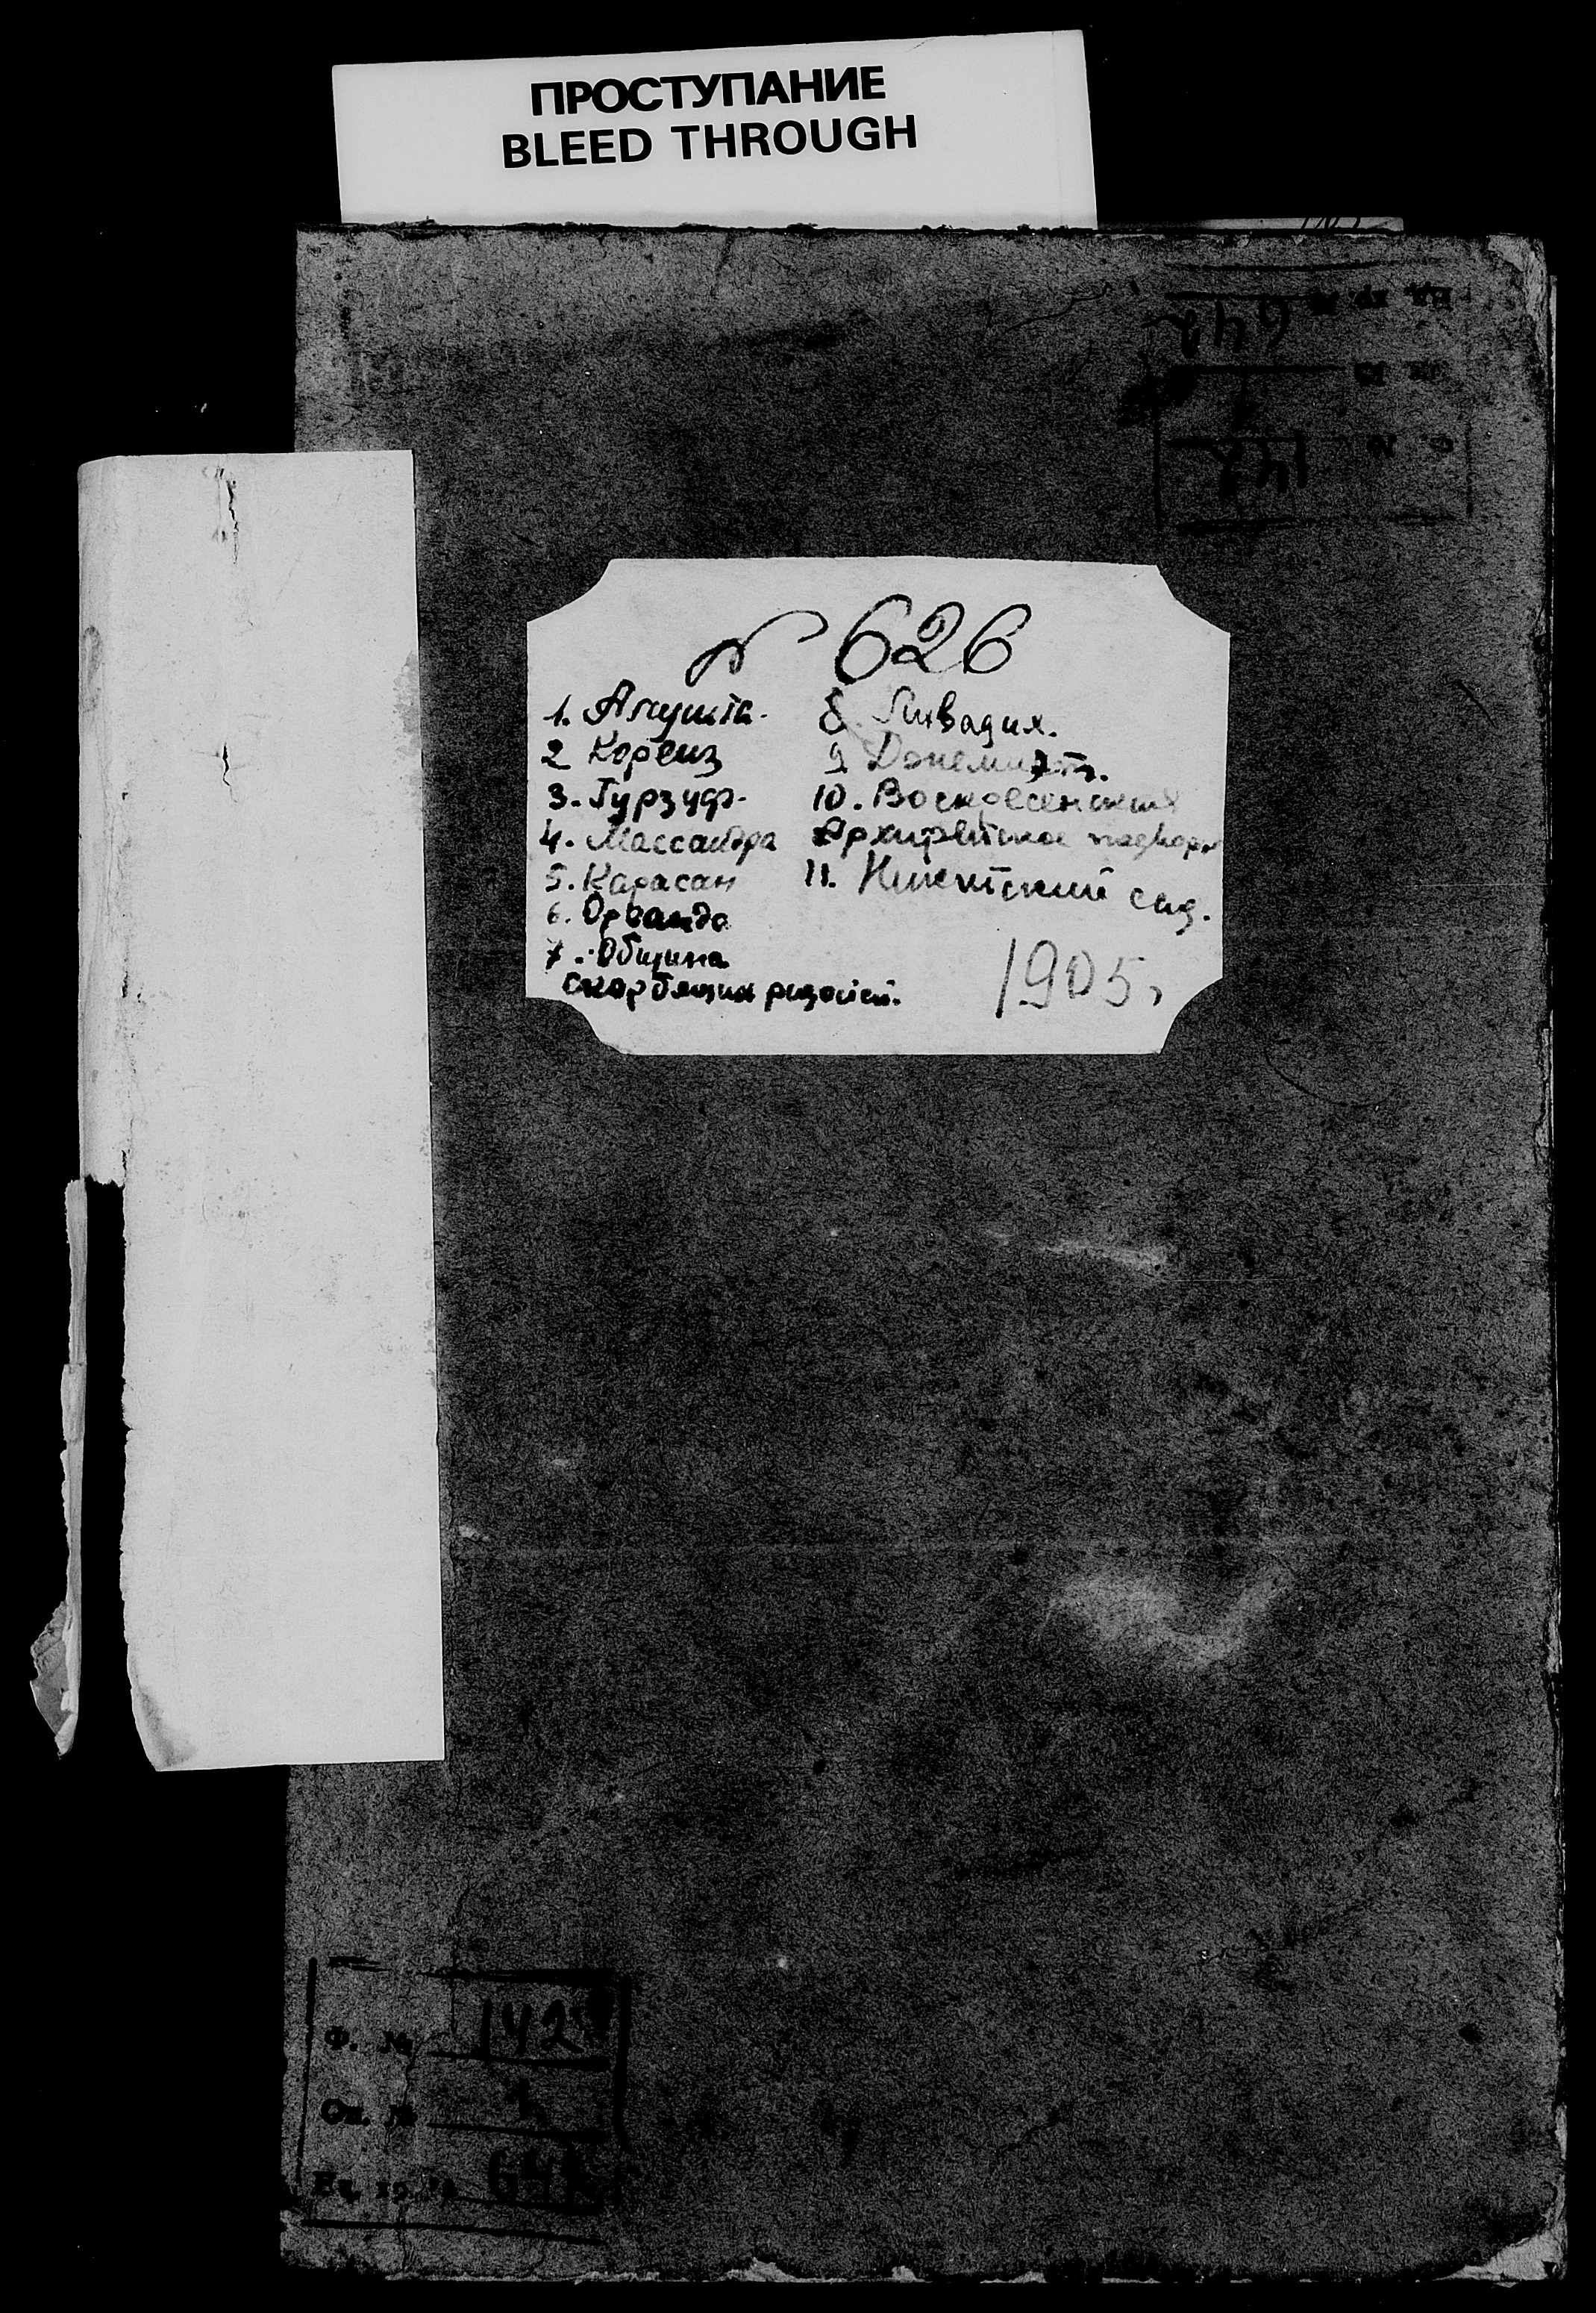 ПРОСТУПАНИЕ
BLEED THROUGH
№ 626
1. Алушта.
2 Кореиз
3. Гурзуф.
4. Массандра
5. Карасан
6. Ореанда
7. Община
скорбящих радостей.
8. Ливадия.
9
10. Воскресенский
Архирейское подворье
11. Никитский сад.
1905г
Ф. № 142
Оп. № 1
Ед. хр. №